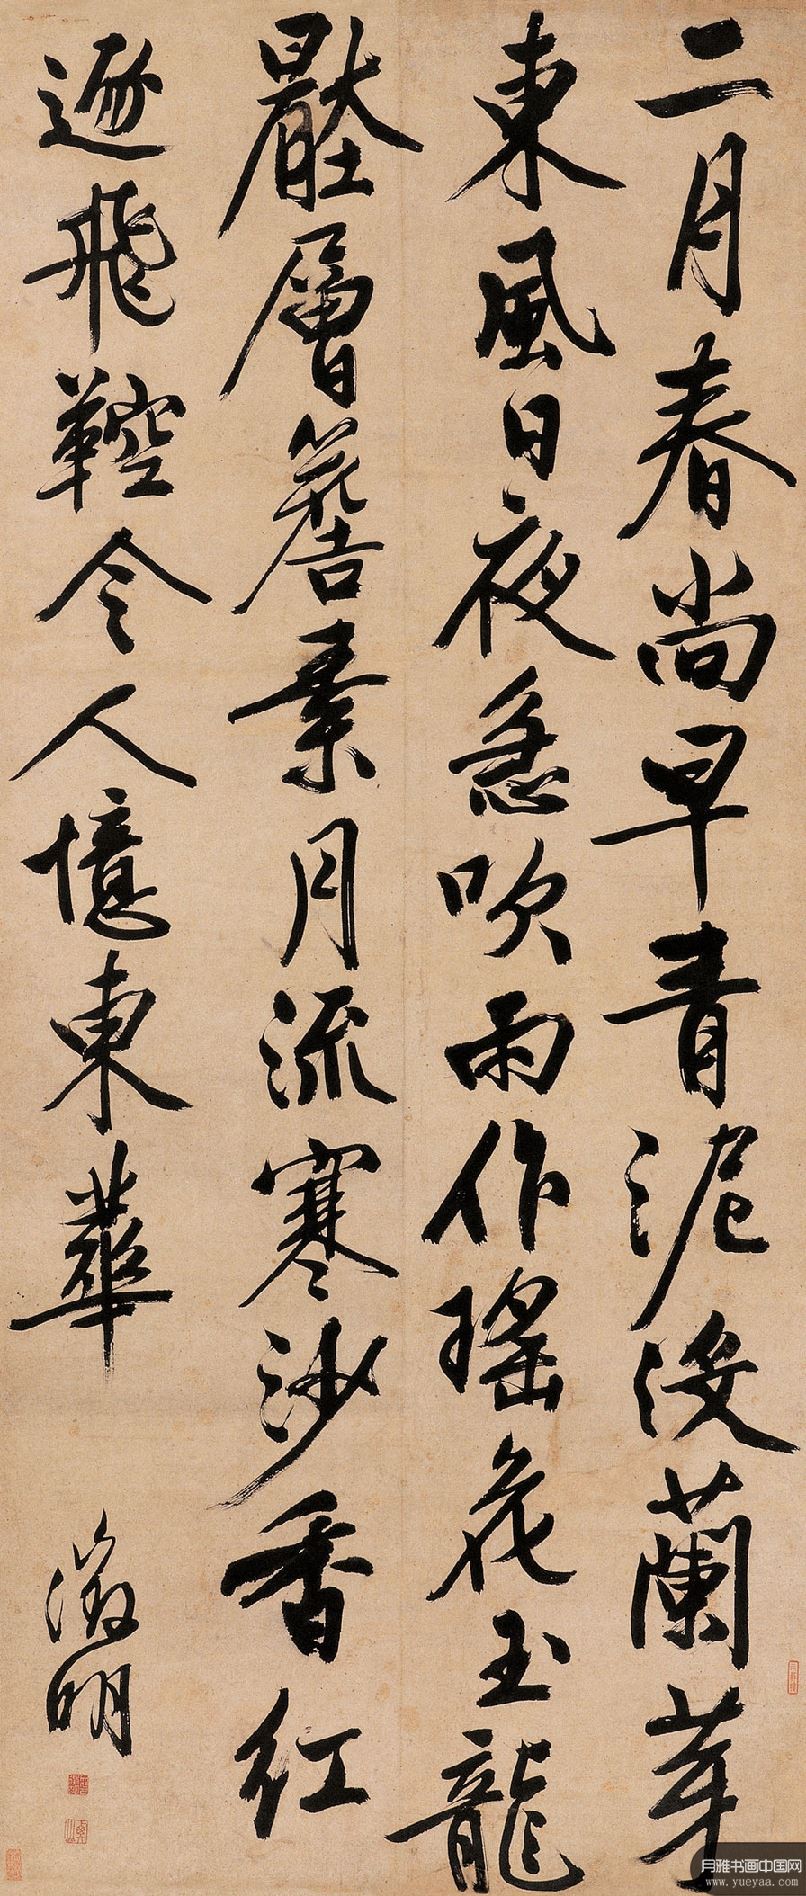 二月春尚早青泥没蘭芽
東風日夜急吹雨作瑤花玉龍
壓層簷素月流寒沙香紅
逐飛鞚令人憶東華
徵明
月雅书画中国网
www.yueyaa.com